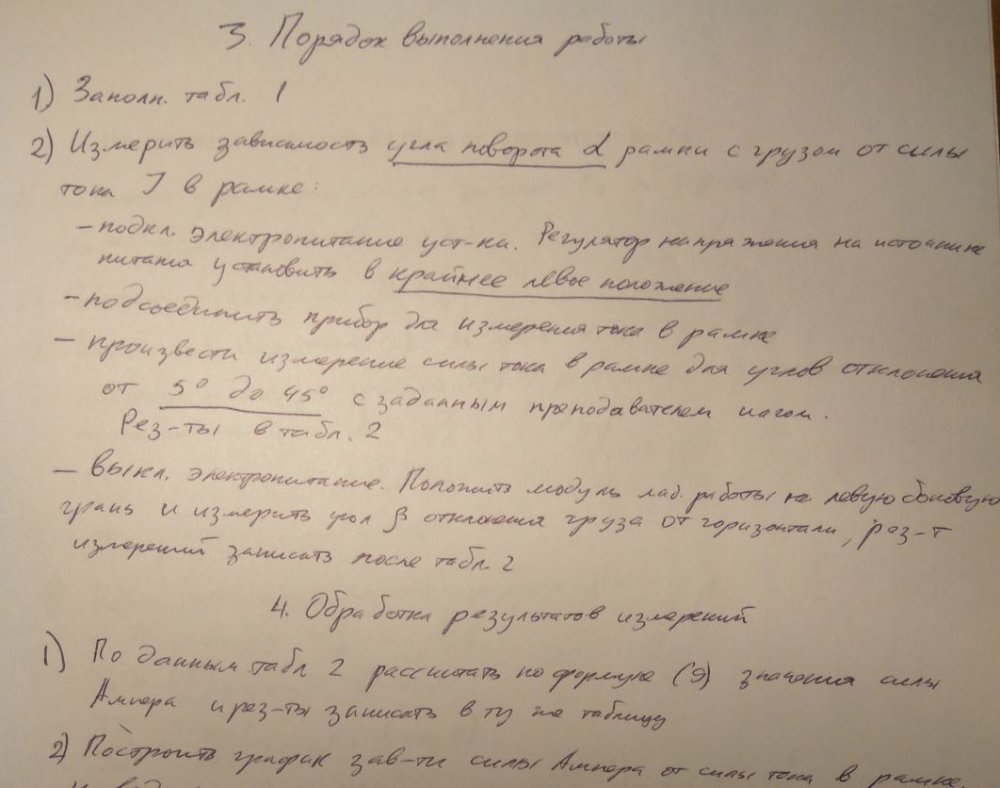 3. Порядок выполнения работы
1) Заполн. табл. 1
2) Измерить зависимость угла поворота α рамки с грузом от силы
тока I в рамке:
– подкл. электропитание уст-ки. Регулятор напряжения на источнике
питания установить в крайнее левое положение
– подсоединить прибор для измерения тока в рамке
– произвести измерение силы тока в рамке для углов отклонения
от 5° до 45° с заданным преподавателем шагом.
Рез-ты в табл. 2
– выкл. электропитание. Положить модуль лаб. работы на левую боковую
грань и измерить угол β отклонения груза от горизонтали, рез-т
измерений записать после табл. 2
4. Обработка результатов измерений
1) По данным табл 2 рассчитать по формуле (9) значения силы
Ампера и рез-ты записать в ту же таблицу
2) Построить график зав-ти силы Ампера от силы тока в рамке.